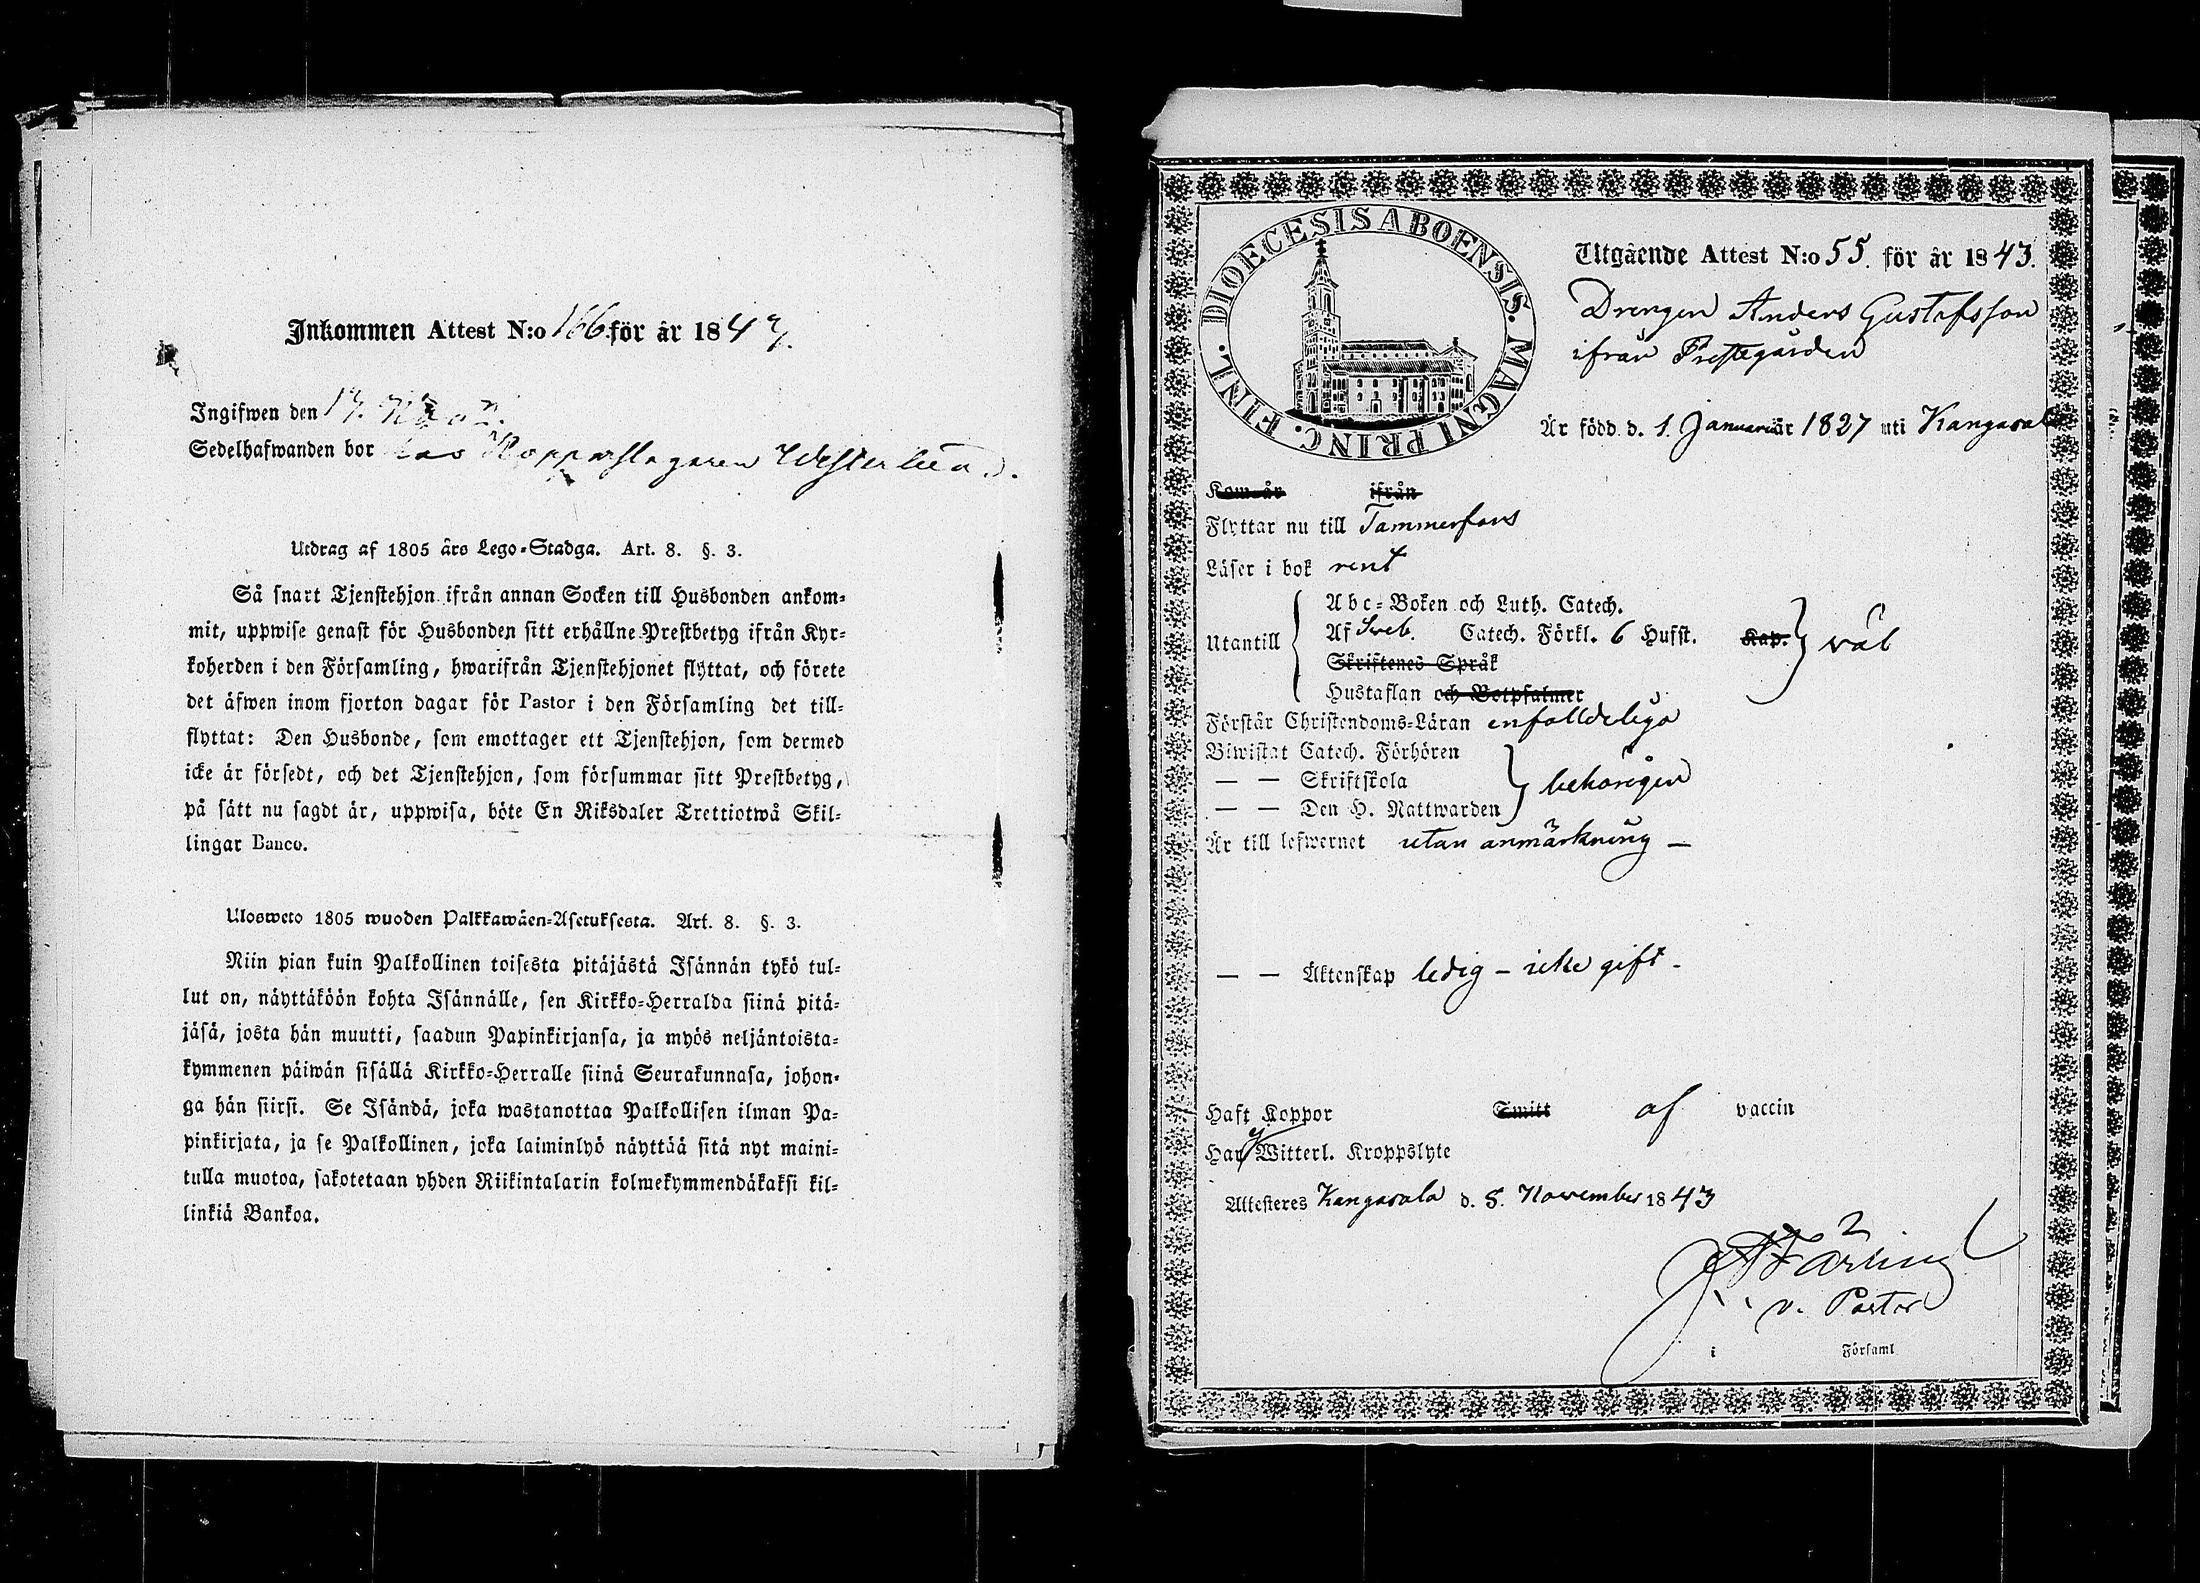 Inkommen Attest N:o 166 för år 1843.
Ingifwen den 13. Nov.
Sedelhafwanden bor hos Kopparslagaren Westerlund.
Utdrag af 1805 års Lego-Stadga. Art. 8. §. 3.
Så snart Tjenstehjon ifrån annan Socken till Husbonden ankom-
mit, uppwise genast för Husbonden sitt erhållne Prestbetyg ifrån Kyr-
koherden i den Församling, hwarifrån Tjenstehjonet flyttat, och förete
det äfwen inom fjorton dagar för Pastor i den Församling det till-
flyttat: Den Husbonde, som emottager ett Tjenstehjon, som dermed
icke är försedt, och det Tjenstehjon, som försummar sitt Prestbetyg,
på sätt nu sagdt är, uppwisa, böte En Riksdaler Trettiotwå Skil-
lingar Banco.
Ulosweto 1805 wuoden Palkkawäen-Asetuksesta. Art. 8. §. 3.
Niin pian kuin Palkollinen toisesta pitäjästä Isännän tykö tul-
lut on, näyttäköön kohta Isännälle, sen Kirkko-Herralda siinä pitä-
jäsä, josta hän muutti, saadun Papinkirjansa, ja myös neljäntoista-
kymmenen päiwän sisällä Kirkko-Herralle siinä Seurakunnasa, johon-
ga hän siirsi. Se Isändä, joka wastanottaa Palkollisen ilman Pa-
pinkirjata, ja se Palkollinen, joka laiminlyö näyttää sitä nyt maini-
tulla muotoa, sakotetaan yhden Riikintalarin kolmekymmendäkaksi kil-
linkiä Bankoa.
DIOECESIS ABOENSIS. MAGNI PRINC. FINL.
Utgående Attest N:o 55. för år 1843.
Drengen Anders Gustafsson
ifrån Prestegården
Är född d. 1. Januari år 1827 uti Kangasala
Kom år ifrån
Flyttar nu till Tammerfors
Läser i bok rent
Utantill
Abc-Boken och Luth. Catech.
Af Sveb. Catech. Förkl. 6 Hufst. Kap. väl
Skriftenes Språk
Hustaflan och Botpsalmer
Förstår Christendoms-Läran enfalldeliga
Biwistat Catech. Förhören
— — Skriftskola behörigen
— — Den H. Nattwarden
Är till lefwernet utan anmärkning —
— — Äktenskap ledig – icke gift –
Haft Koppor Smitt af vaccin
Har Witterl. Kroppslyte
Attesteres Kangasala d. 5. November 1843
v. Pastor
i Församl